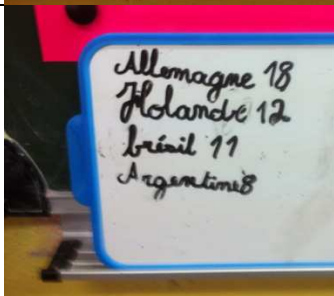 Allemagne 18
Holande 12
brésil 11
Argentine8